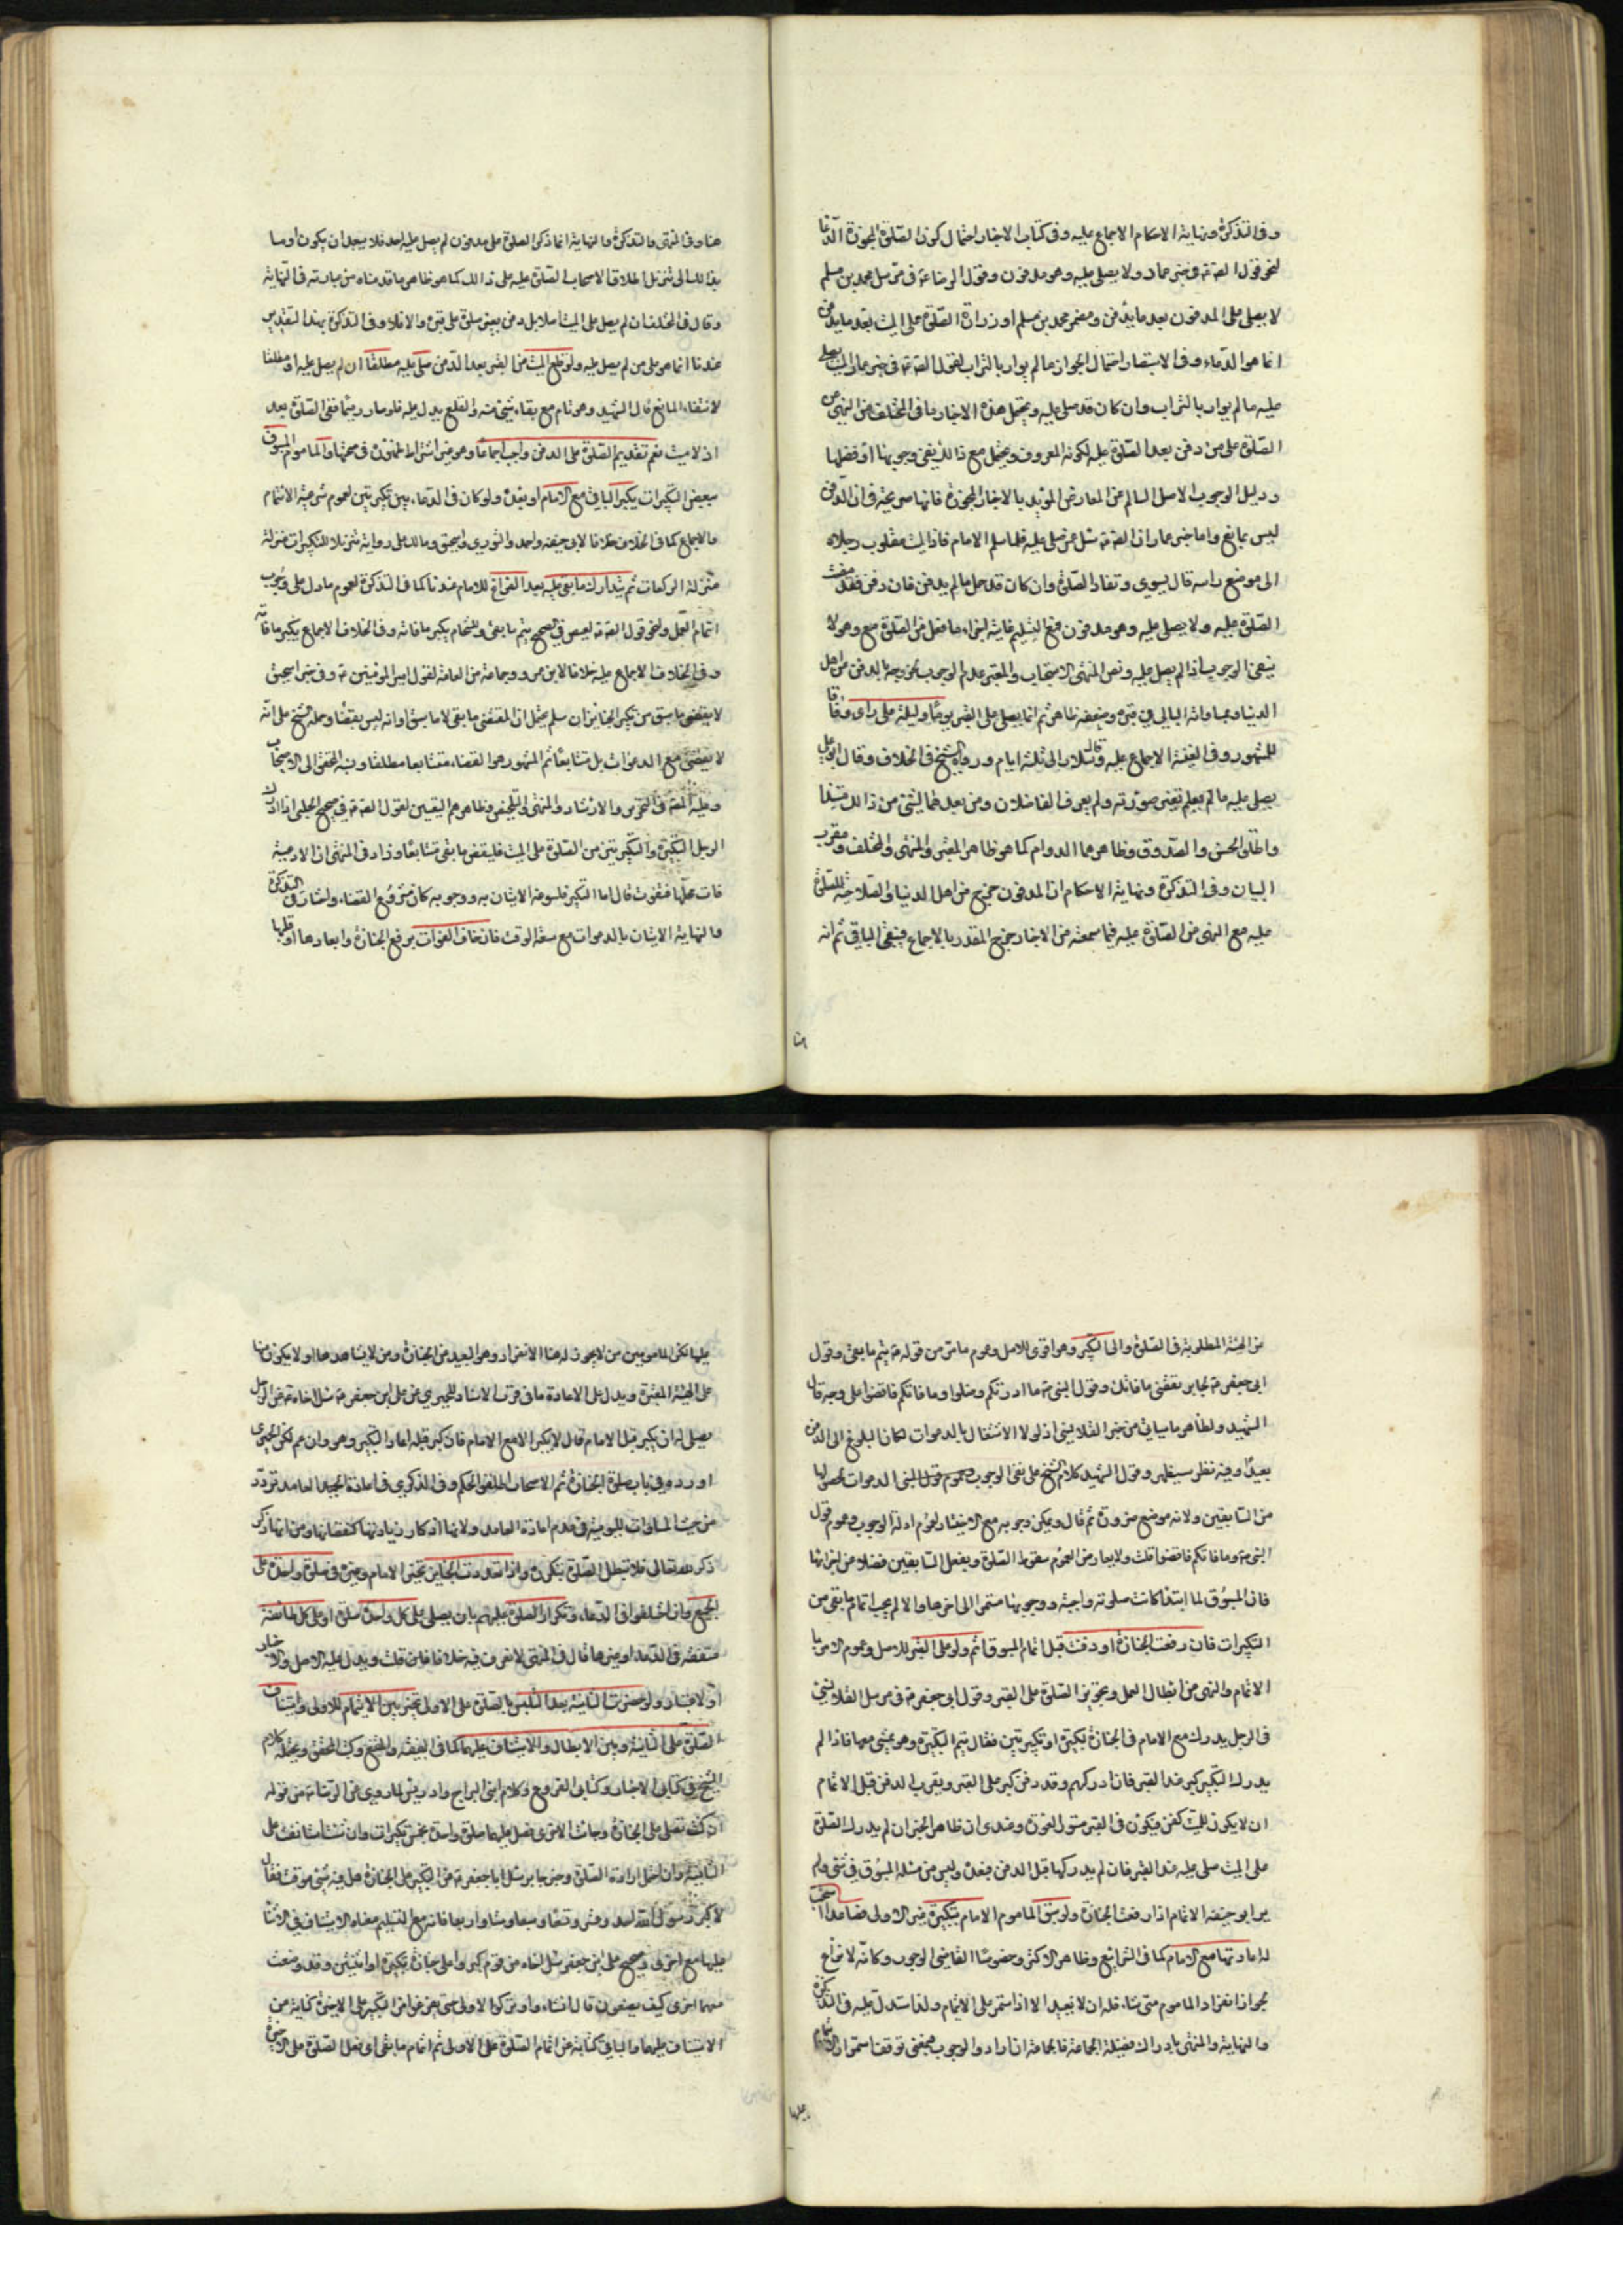 وفي التذكرة ونهاية الاحكام الاجماع عليه وفي كتاب الاخبار احتمال كون الصلوة المجوزة الدعا
لنحو قول الصادق ع في خبر عمار ولا يصلى عليه وهو مدفون وقول الرضا ع في مرسل محمد بن مسلم
لا يصلى على المدفون بعد ما يدفن ومضمر محمد بن مسلم او زرارة الصلوة على الميت بعد ما يدفن
انما هو الدعاء وفي الاستبصار احتمال الجواز ما لم يوار بالتراب لقول الصادق ع في خبر عمار الميت يصلى
عليه ما لم يوار بالتراب وان كان قد صلى عليه ويحتمل هذه الاخبار ما في المختلف من النهي عن
الصلوة على من دفن بعد الصلوة عليه لكونه المعروف ويحتمل مع ذالك نفي وجوبها او فضلها
ودليل الوجوب الاصل السالم عن المعارض المؤيد بالاخبار المجوزة فانها صريحة في ان الدفن
ليس بمانع واما خبر عمار ان الصادق ع سئل عمن صلى عليه فلما سلم الامام فاذا الميت مقلوب رجلاه
الى موضع راسه قال يسوى وتعاد الصلوة وان كان قد حمل ما لم يدفن فان دفن فقد مضت
الصلوة عليه ولا يصلى عليه وهو مدفون فمع التسليم غايته اجزاء ما فعل من الصلوة مع وهو لا
ينفي الوجوب اذا لم يصل عليه ونص المنتهى الاستحباب والمعتبر عدم الوجوب لخروجه بالدفن من اهل
الدنيا وبمساواته البالي في قبره وضعفه ظاهر ثم انما يصلى على القبر يوما وليلة على راى وفاقا
للمشهور وفي الغنية الاجماع عليه وقال سلار الى ثلثة ايام ورواه الشيخ في الخلاف وقال ابو علي
يصلى عليه ما لم يعلم تغير صورته ولم يعرف الفاضلان ومن بعدهما لشئ من ذالك مستندا
واطلق الحسن والصدوق وظاهرهما الدوام كما هو ظاهر المعتبر والمنتهى والمختلف ومقرب
البيان وفي التذكرة ونهاية الاحكام ان المدفون خرج من اهل الدنيا والصلاحية للصلوة
عليه مع النهي عن الصلوة عليه فيما سمعته من الاخبار خرج المقدر بالاجماع فبقي الباقي ثم انه
هنا وفي المنتهى والتذكرة والنهاية انما ذكر الصلوة على مدفون لم يصل عليه احد فلا يبعد ان يكون اوما
بذالك الى تنزيل اطلاق الاصحاب الصلوة عليه على ذالك كما هو ظاهر ما قدمناه من عبارته في النهاية
وقال في المختلف ان لم يصل على الميت اصلا بل دفن بغير صلوة صلى على قبره والا فلا وفي التذكرة بهذا التقدير
عندنا انما هو على من لم يصل عليه ولو قلع الميت من القبر بعد الدفن صلى عليه مطلقا ان لم يصل عليه او مطلقا
لانتفاء المانع قال الشهيد وهو تام مع بقاء شئ منه والقلع يدل عليه فلو صار رميما ففي الصلوة بعد
اذ لا ميت نعم تقديم الصلوة على الدفن واجب اجماعا وهو غير اشتراط ظهوره في صحتها والماموم المسبوق
ببعض التكبيرات يكبر الباقي مع الامام او بعده ولو كان في الدعاء بين تكبيرتين لعموم شرعية الائتمام
والاجماع كما في الخلاف خلافا لابي حنيفة واحمد والثوري واسحق ومالك على رواية تنزيلا للتكبيرات منزلة
منزلة الركعات ثم يتدارك ما بقي عليه بعد الفراغ للامام عندنا كما في التذكرة لعموم ما دل على وجوب
اتمام العمل ونحو قول الصادق ع لعيص في الصحيح يتم ما بقي وللشحام يكبر ما فاته وفي الخلاف الاجماع يكبر ما فاته
وفي الخلاف الاجماع عليه خلافا لابن عمر وجماعة من العامة لقول امير المؤمنين ع في خبر اسحق
لا يقضى ما سبق من تكبير الجنايز ان سلم يحتمل ان المقضى ما بقي لا ما سبق او انه ليس بقضاء وحمله الشيخ على انه
لا يقضى مع الدعوات بل متتابعا ثم المشهور هو القضاء متتابعا مطلقا ونسبه المحقق الى الاصحاب
وعليه المصنف في التحرير والارشاد والمنتهى والتلخيص وظاهرهم التعيين لقول الصادق ع في صحيح الحلبي اذا ادرك
الرجل التكبيرة والتكبيرتين من الصلوة على الميت فليقض ما بقي متتابعا وزاد في المنتهى ان الادعية
فات محلها ففوت قال اما التكبير فلسرعة الاتيان به ووجوبه كان مشروع القضاء واختار في التذكرة
والنهاية الاتيان بالدعوات مع سعة الوقت فان خاف الفوات برفع الجنازة وابعادها او قلبها
عن الهيئة المطلوبة في الصلوة والى التكبير وهو اقوى للاصل وعموم ما مر من قوله ع يتم ما بقي وقول
ابي جعفر ع لجابر تقضي ما فاتك وقول النبي ص ما ادركتم فصلوا وما فاتكم فاقضوا على وجه قال
الشهيد ولظاهر ما سياتي من خبر القلانسي اذ لولا الاشتغال بالدعوات لكان البلوغ الى الدفن
بعيدا وفيه نظر سيظهر وقول الشهيد كلام الشيخ على نفي الوجوب وعموم قول النبي الدعوات لحصولها
من السابقين ولانه موضع ضرورة ثم قال ويمكن وجوبه مع الاختيار لعموم ادلة الوجوب وعموم قول
النبي ص وما فاتكم فاقضوا قلت ولا يعارض العموم سقوط الصلوة وبفعل السابقين فضلا عن اجزائها
فان المسبوق لما ابتدأ كانت صلوته واجبة ووجوبها مستمر الى اخرها والا لم يجب اتمام ما بقي من
التكبيرات فان رفعت الجنازة او دفنت قبل اتمام المسبوق اتم ولو على القبر للاصل وعموم الامر با
الاتمام والنهي عن ابطال العمل وتجويز الصلوة على القبر وقول ابي جعفر ع في مرسل القلانسي
في الرجل يدرك مع الامام في الجنازة تكبيرة او تكبيرتين فقال يتم التكبيرة وهو يمشي معها فاذا لم
يدرك التكبير كبر عند القبر فان ادركهم وقد دفن كبر على القبر ويقرب الدفن قبل الاتمام
ان لا يكون للميت كفن فيكون في القبر مستور العورة وعندي ان ظاهر الخبر ان لم يدرك الصلوة
على الميت صلى عليه عند القبر فان لم يدركها قبل الدفن فبعده وليس من مسئلة المسبوق في شئ ولم
ير ابو حنيفة الاتمام اذا رفعت الجنازة ولو سبق الماموم الامام بتكبيرة غير الاولى فصاعدا استحب
له اعادتها مع الامام كما في الشرائع وظاهر الاكثر وخصوصا القاضي الوجوب وكانه لا نزاع
لجواز انفراد الماموم متى شاء فله ان لا يعيد الا اذا استمر على الائتمام ولذا استدل عليه في التذكرة
والنهاية والمنتهى بادراك فضيلة الجماعة فالجماعة ان ارادوا الوجوب فبمعنى توقف استمرار الائتمام
عليها لكن المامومين من لا يجوز له هنا الانفراد وهو البعيد من الجنازة ومن لا يشاهدها او لا يكون منها
على الهيئة المعتبرة ويدل على الاعادة ما في قرب الاسناد للحميري عن علي بن جعفر ع سئل اخاه ع عن الرجل
يصلي له ان يكبر قبل الامام قال لا يكبر الا مع الامام فان كبر قبله اعاد التكبير وهو وان عم لكن الحميرى
اورده في باب صلوة الجنازة ثم الاصحاب اطلقوا الحكم وفي الذكرى في اعادة المجيد العامد تردد
من حيث المساوات لليومية في عدم اعادة العامد ولانها اذكار زيادتها كنقصانها ومن انها ذكر
ذكر الله تعالى فلا تبطل الصلوة بتكرره واذا تعددت الجنايز تخير الامام وغيره في صلوة واحدة على
الجميع وان اختلفوا في الدعاء وتكرار الصلوة عليهم بان يصلى على كل واحد صلوة او على كل طائفة
متفقة في الدعاء او غيرها قال في المنتهى لا نعرف فيه خلافا قلت ويدل عليه الاصل والاخبار
او لاختيار ولو حضرت الثانية بعد التلبس بالصلوة على الاولى تخير بين الاتمام للاولى واستيناف
الصلوة على الثانية وبين الابطال والاستيناف عليهما كما في الفقيه والمقنع وكتب المحقق ويحتمله كلام
الشيخ في كتابي الاخبار وكتابي الفروع وكلام ابني البراج وادريس لما روي عن الرضا ع من قوله
ان كنت تصلي على الجنازة وجاءت الاخرى فصل عليهما صلوة واحدة بخمس تكبيرات وان شئت استانفت على
الثانية وان احتمل ارادة الصلوة وخبر جابر سئل ابا جعفر ع عن التكبير على الجنازة هل فيه شئ موقت فقال
لا كبر رسول الله احد عشر وتسعا وسبعا وستا واربعا فانه مع التسليم معناه الاستيناف في الاثنا
عليها مع اخرى وصحيح علي بن جعفر سئل اخاه عن قوم كبروا على جنازة تكبيرة او اثنتين وقد وضعت
معها اخرى كيف يصنعون قال ان شاءوا تركوا الاولى حتى يفرغوا من التكبير على الاخيرة كناية عن
الاستيناف عليهما والباقي كناية عن اتمام الصلوة على الاولى ثم اتمام ما بقي اي فعل الصلوة على الاخيرة